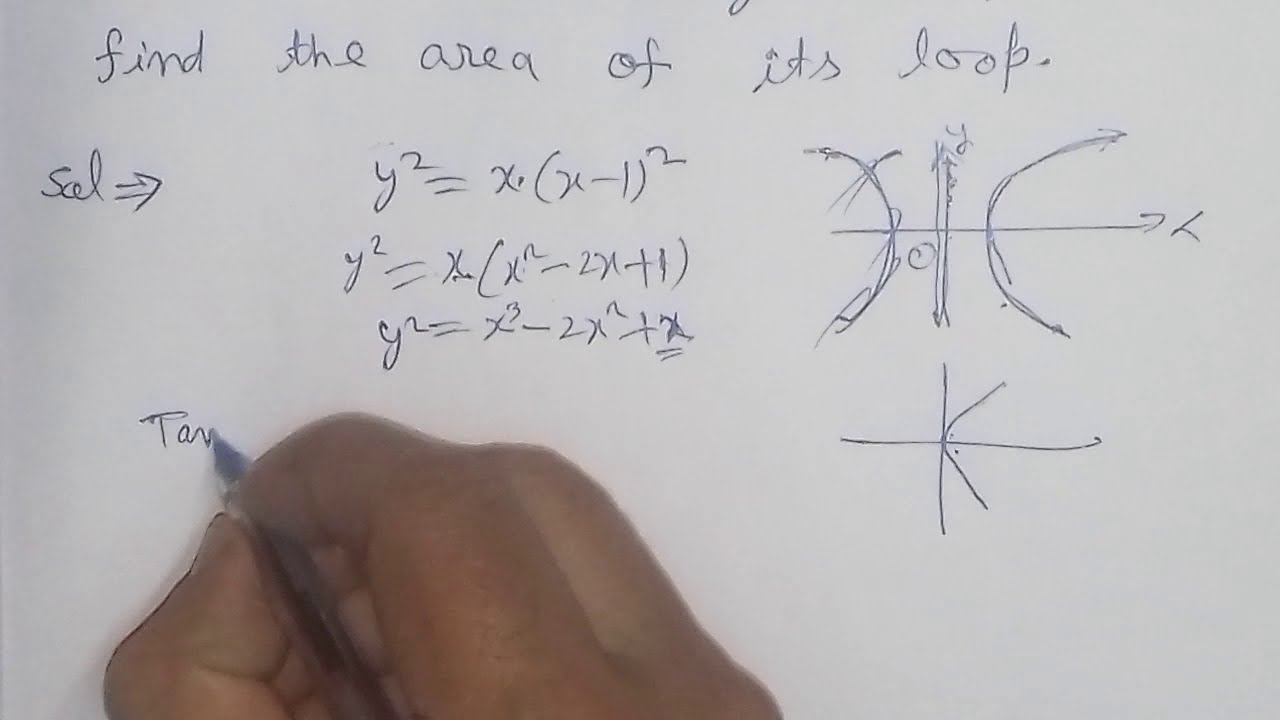 find the area of its loop.
Sol ⇒
y² = x.(x-1)²
y² = x.(x²-2x+1)
y² = x³-2x²+x
y
O
Tan